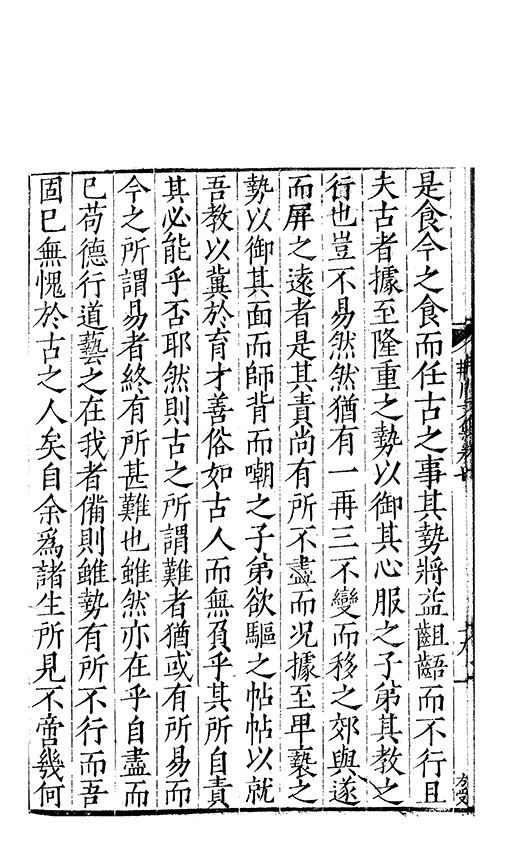 是食今之食而任古之事其勢將益齟齬而不行且
夫古者據至隆重之勢以御其心服之子弟其教之
行也豈不易然然猶有一再三不變而移之郊與遂
而屏之遠者是其責尚有所不盡而况據至卑褻之
勢以御其面而師背而嘲之子弟欲驅之帖帖以就
吾教以冀於育才善俗如古人而無負乎其所自責
其必能乎否耶然則古之所謂難者猶或有所易而
今之所謂易者終有所甚難也雖然亦在乎自盡而
已苟德行道藝之在我者備則雖勢有所不行而吾
固已無愧於古之人矣自余爲諸生所見不啻幾何